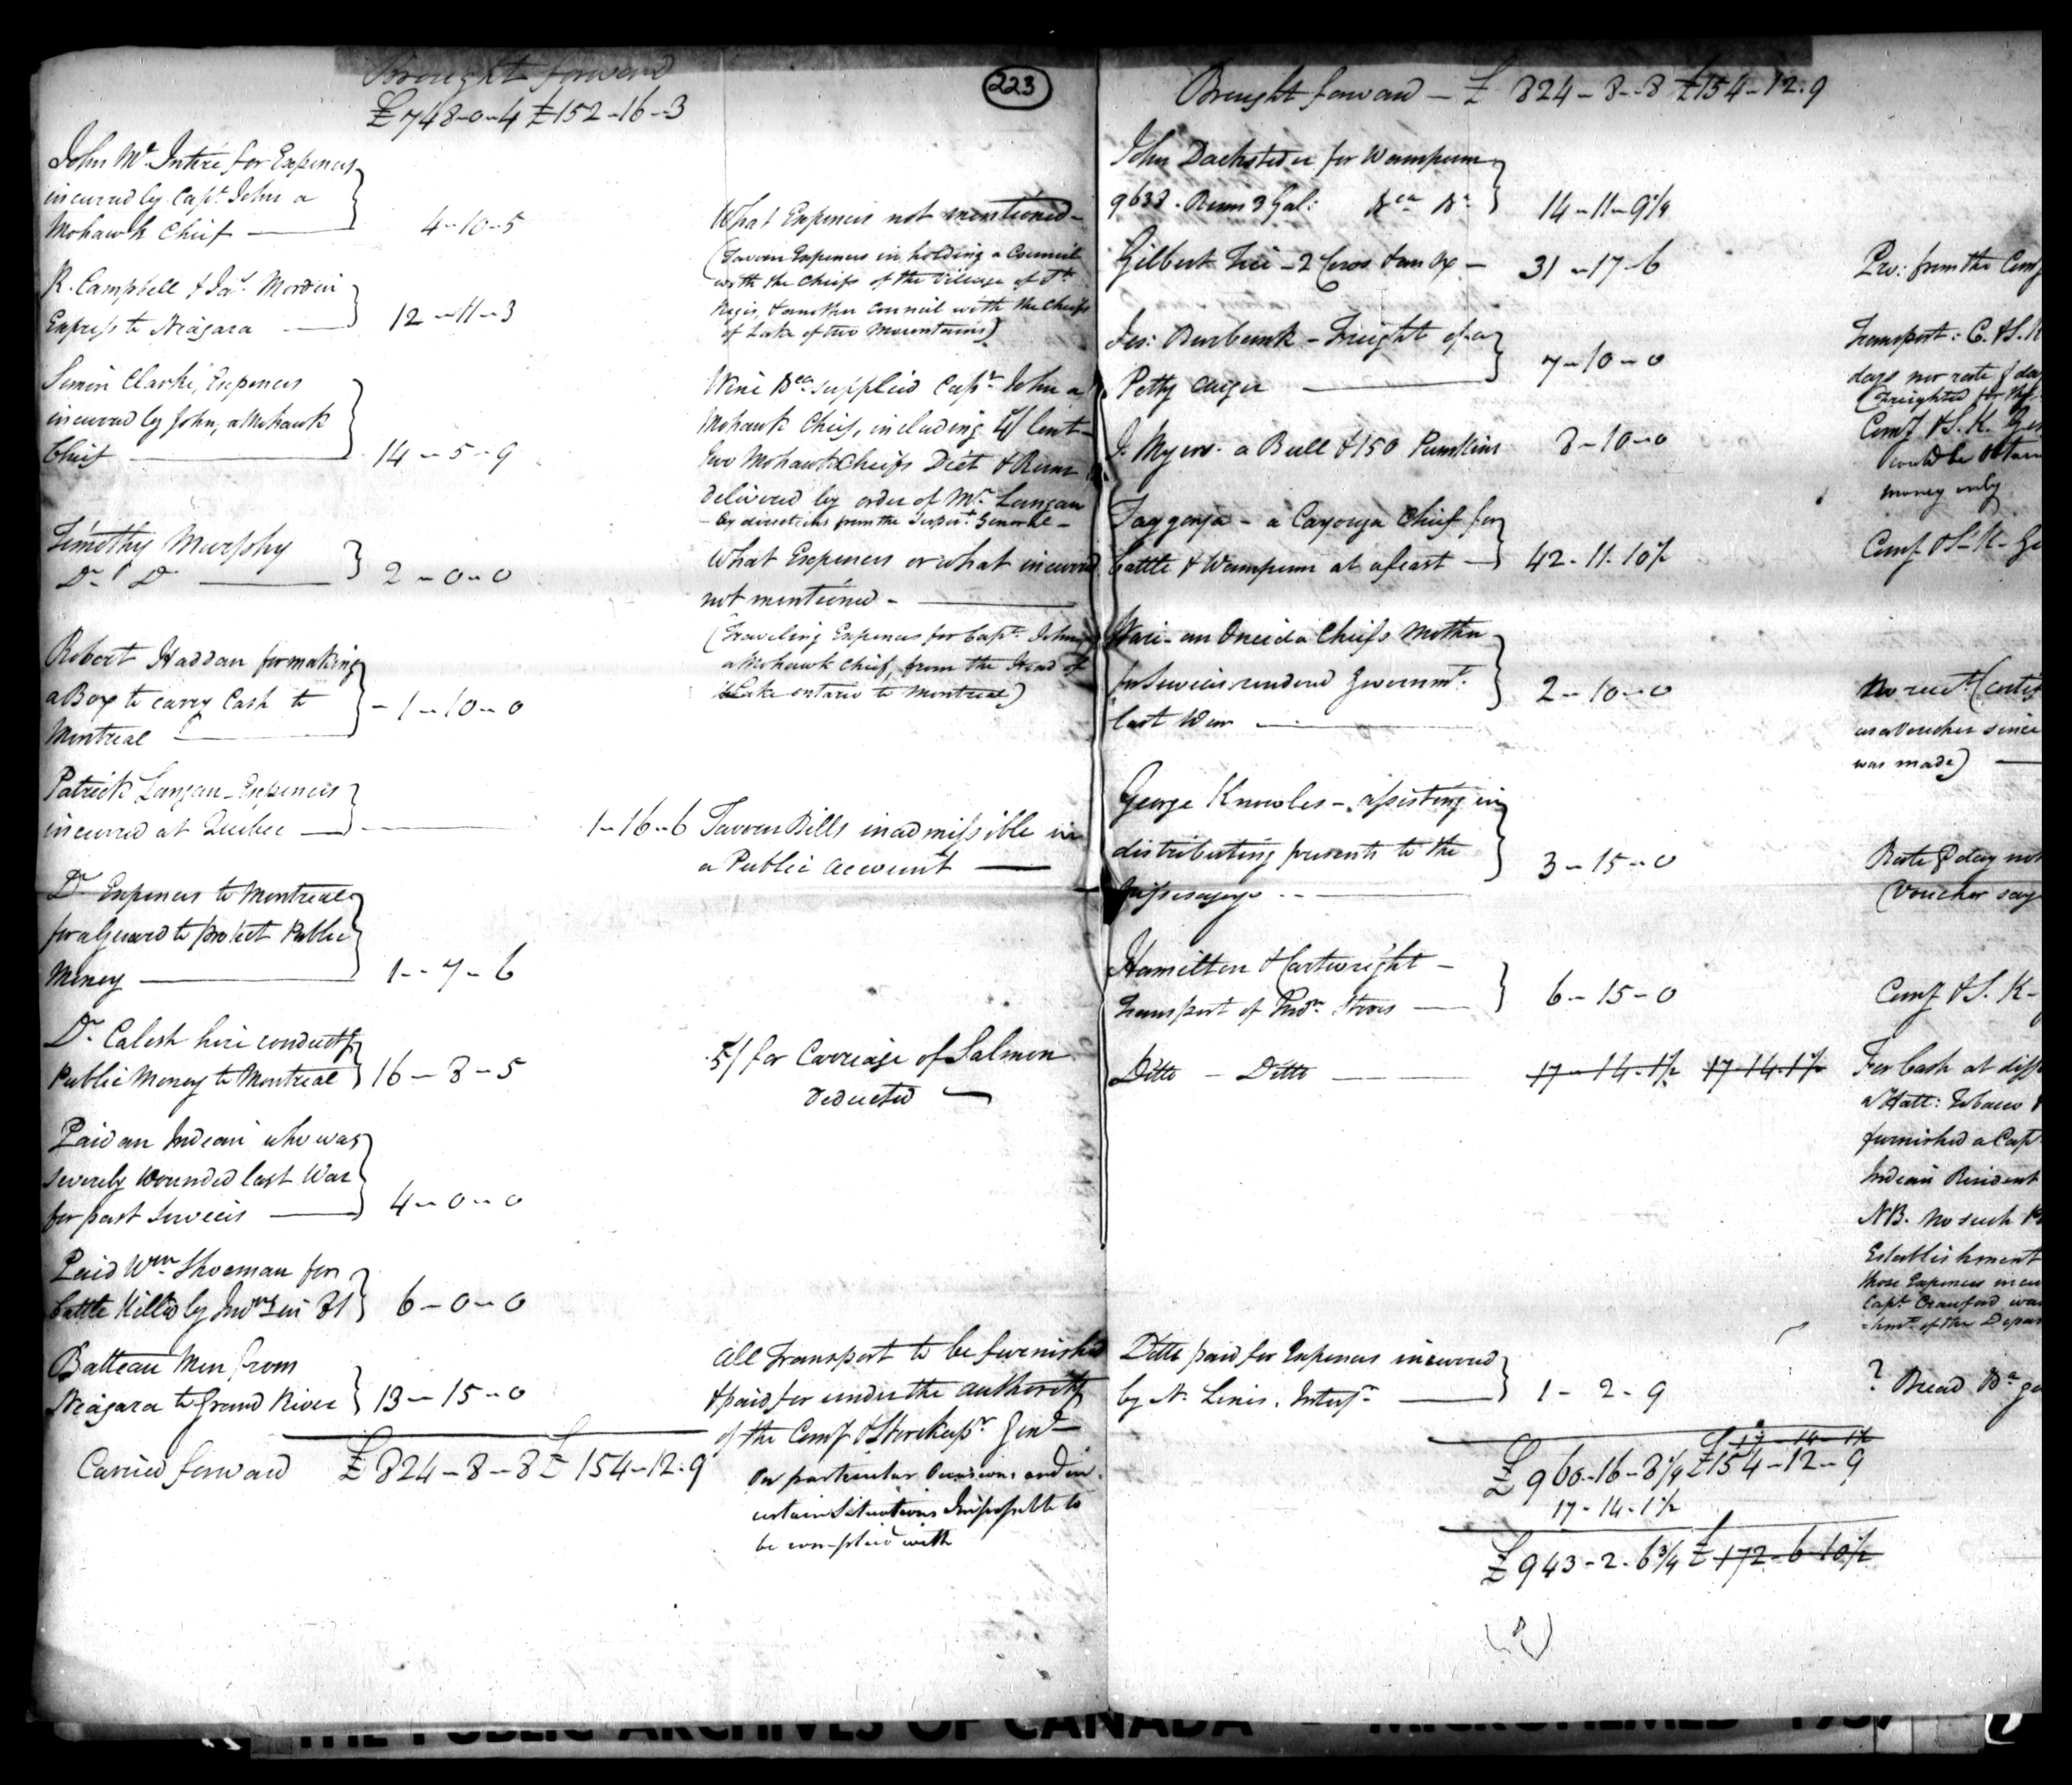 Brought forward
£748-0-4 £152-16-3
223
John Mc. Intire for Expences
incurred by Capt. John a
Mohawk Chief — 4-10-5
What Expences not mentioned -
(Tavern Expences in holding a Council
with the Chiefs of the Village of St.
Regis, & another Council with the Chiefs
of Lake of two Mountains)
R. Campbell & Jas. Morden
Express to Niagara — 12-11-3
Simon Clarke, Expences
incurred by John, a Mohawk
Chief — 14-5-9
Wine &ca. supplied Capt. John a
Mohawk Chief, including 4/ lent -
two Mohawk Chiefs Diet & Rum
delivered by order of Mr. Langan
- by directions from the Supert. General -
Timothy Murphy
Do. Do. — 2-0-0
What Expences or what incurred
not mentioned -
(Traveling Expences for Capt. John
a Mohawk Chief, from the Head of
Lake Ontario to Montreal)
Robert Haddan for making
a Box to carry Cash to
Montreal — 1-10-0
Patrick Langan - Expences
incurred at Quebec — 1-16-6
Tavern Bills inadmissible in
a Public Account —
Do. Expences to Montreal
for a Guard to protect Public
Money — 1-7-6
Do. Calesh hire conductg
Public Money to Montreal 16-8-5
5/ for Carriage of Salmon
deducted
Paid an Indian who was
severely wounded last War
for past Services — 4-0-0
Paid Wm. Shoeman for
Cattle Killed by Indns in 6-0-0
Batteau Men from
Niagara to Grand River 13-15-0
All Transport to be furnished
& paid for under the authority
of the Comy & Storekeepr. Genl -
On particular Occasions and in
certain Situations Impossible to
be complied with
Carried forward £824-8-8 £154-12-9
Brought forward - £ 824-8-8 £154-12-9
John Dochsteder for Wampum
9638. Rum 3 Gal: &ca &a 14-11-9¼
Gilbert Tice - 2 Cows & an Ox - 31-17-6
Pro: from the Comy
Jes: Burbank - Freight of a
Petty auger — 7-10-0
Transport: C. & S. K
days nor rate p day
(Freighted for the
J. Myers. a Bull & 150 Pumkins 8-10-0
Comy & S. K. Gen
could be obtain
money only
Taggonja - a Cayouga Chief for
Cattle & Wampum at a feast — 42-11-10½
Comy & S. K. Ge
Wari - an Oneida Chiefs Mother
for Services rendered Governmt.
last War — 2-10-0
No rect. (certif
as a Voucher since
was made) —
George Knowles - assisting in
distributing presents to the
Missesagys — 3-15-0
Rate p day not
(Voucher say
Hamilton & Cartwright -
Transport of Indn. Stores — 6-15-0
Comy & S. K -
Ditto - Ditto — 17-14-1½ 17-14-1½
For Cash at diff
furnished a Capt
Indian Resident
NB. No such
Establishment
those Expences incur
Capt. Crauford was
-hmt. of the Depar
Ditto paid for Expences incurred
by N. Linis. Interpr. — 1-2-9
? Bread &a
17-14-1½
£960-16-8¼ £154-12-9
17-14-1½
£943-2-6¾ £172-6-10½
THE PUBLIC ARCHIVES OF CANADA - MICROFILMED 1957